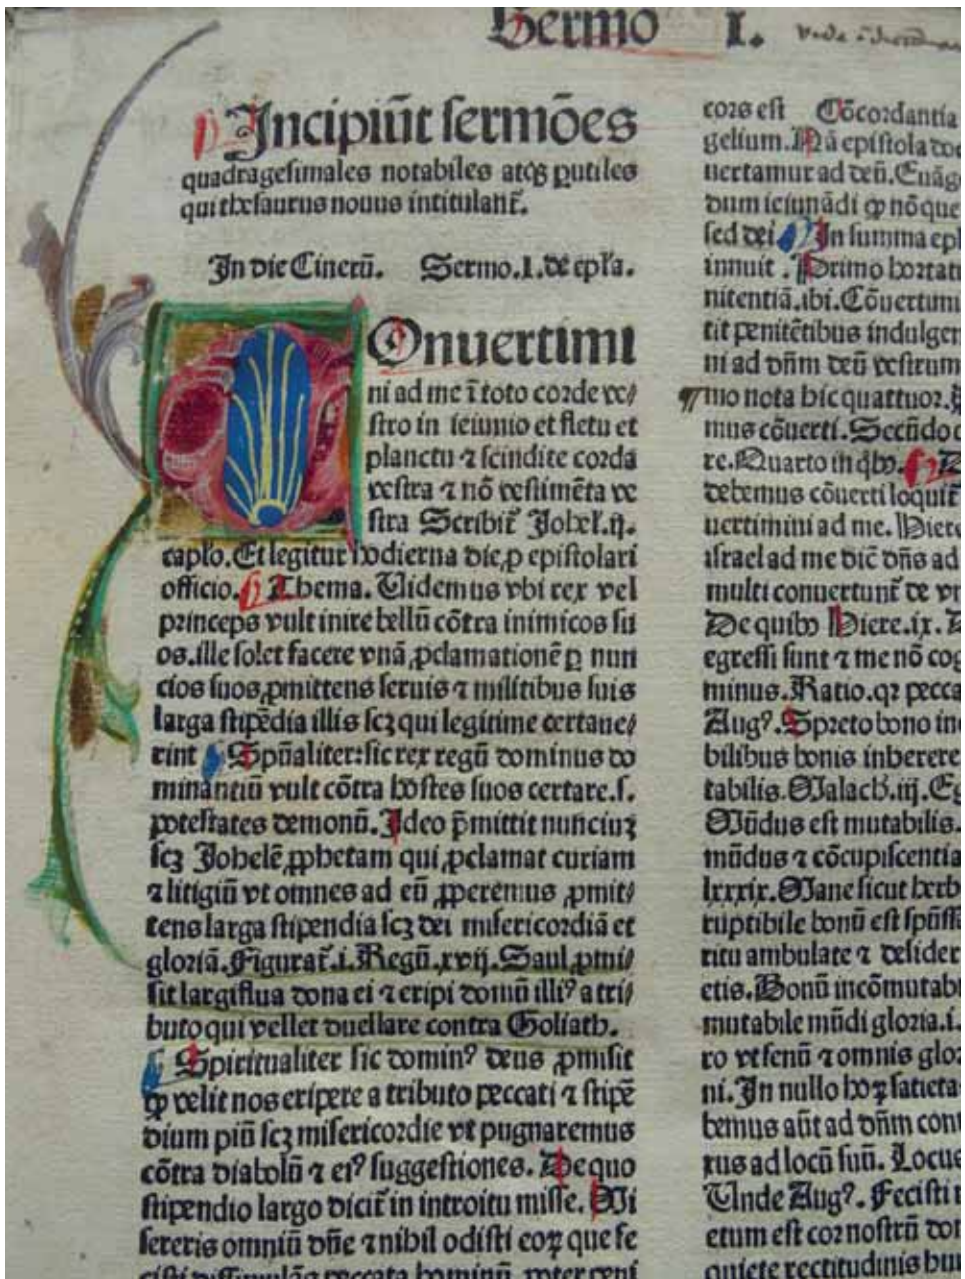 Sermo I.
Incipiūt sermōes
quadragesimales notabiles atqꝫ ꝑutiles
qui thesaurus nouus intitulant᷑.
In die Cinerū. Sermo.I.de epl'a.
Onuertimi
ni ad me ī toto corde ve/
stro in ieiunio et fletu et
planctu ⁊ scindite corda
vestra ⁊ nō vestimēta ve
stra Scribit᷑ Johel'.ij.
capl'o. Et legitur hodierna die ꝓ epistolari
officio. Thema. Uidemus vbi rex vel
princeps vult inire bellū cōtra inimicos su
os. ille solet facere vnā ꝓclamationē ꝑ nun
cios suos ꝓmittens seruis ⁊ militibus suis
larga stipēdia illis scꝫ qui legitime certaue/
rint Spūaliter: sic rex regū dominus do
minantiū vult cōtra hostes suos certare.s.
potestates demonū. Ideo p̄mittit nunciuꝫ
scꝫ Johelē ꝓphetam qui ꝓclamat curiam
⁊ litigiū vt omnes ad eū ꝓperemus ꝓmit/
tens larga stipendia scꝫ dei misericordiā et
gloriā. Figurat᷑.i.Regū.xvij. Saul ꝓmi/
sit largiflua dona ei ⁊ eripi domū illiꝰ a tri/
buto qui vellet duellare contra Goliath.
Spiritualiter sic dominꝰ deus ꝓmisit
ꝙ velit nos eripere a tributo peccati ⁊ stipē
dium piū scꝫ misericordie vt pugnaremus
cōtra diabolū ⁊ eiꝰ suggestiones. De quo
stipendio largo dicit᷑ in introitu misse. Mi
sereris omniū dn̄e ⁊ nihil odisti eoꝝ que fe
cisti dissimulās peccata hominū ꝓpter peni
cors est Cōcordantia
gelium. Nā epistola doc
uertamur ad deū. Euāg
dum ieiunādi ꝙ nō que
sed dei. In summa epl
innuit. Primo hortat
nitentiā.ibi.Cōuertimi
tit penitētibus indulgen
ni ad dn̄m deū vestrum
mo nota hic quattuor.
mus cōuerti. Secūdo
re. Quarto in qͥbꝰ.
debemus cōuerti loquit᷑
uertimini ad me. Hiere
israel ad me dic̄ dn̄s ad
multi conuertunt᷑ de vn
De quibꝰ Hiere.ix.
egressi sunt ⁊ me nō cog
minus. Ratio.qꝛ pecca
Augꝰ. Spreto bono inc
bilibus bonis inherere
tabilis. Malach.iij. Eg
Mūdus est mutabilis.
mūdus ⁊ cōcupiscentia
lxxxix. Mane sicut herb
ruptibile bonū est spūss
ritu ambulate ⁊ desider
etis. Bonū incōmutabi
mutabile mūdi gloria.i.
ro vt fenū ⁊ omnis glor
ni. In nullo hoꝝ satieta
bemus aūt ad dn̄m con
rus ad locū suū. Locus
Unde Augꝰ. Fecisti
etum est cor nostrū don
quiete rectitudinis hu